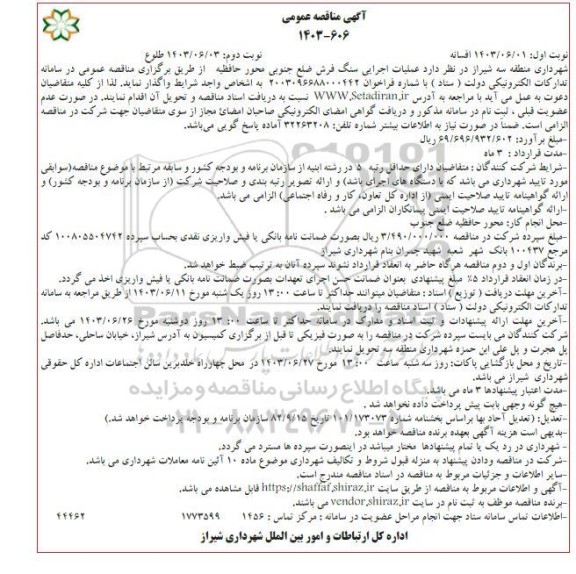 آگهی مناقصه عمومی
۱۴۰۳-۶۰۶
نوبت اول: ۱۴۰۳/۰۶/۰۱ افسانه نوبت دوم: ۱۴۰۳/۰۶/۰۳ طلوع
شهرداری منطقه سه شیراز در نظر دارد عملیات اجرایی سنگ فرش ضلع جنوبی محور حافظیه از طریق برگزاری مناقصه عمومی در سامانه
تدارکات الکترونیکی دولت ( ستاد ) با شماره فراخوان ۲۰۰۳۰۹۶۶۸۸۰۰۰۴۴۲ به اشخاص واجد شرایط واگذار نماید. لذا از کلیه متقاضیان
دعوت به عمل می آید با مراجعه به آدرس WWW.Setadiran.ir نسبت به دریافت اسناد مناقصه و تحویل آن اقدام نمایند. در صورت عدم
عضویت قبلی ، ثبت نام در سامانه مذکور و دریافت گواهی امضای الکترونیکی صاحبان امضائ مجاز از سوی متقاضیان جهت شرکت در مناقصه
الزامی است. ضمنا در صورت نیاز به اطلاعات بیشتر شماره تلفن: ۳۲۲۶۳۲۰۸ آماده پاسخ گویی می‌باشد.
-مبلغ برآورد: ۶۹/۶۹۶/۹۳۲/۶۰۲ ریال
-مدت قرارداد : ۳ ماه
-شرایط شرکت کنندگان : متقاضیان دارای حداقل رتبه ۵ در رشته ابنیه از سازمان برنامه و بودجه کشور و سابقه مرتبط با موضوع مناقصه(سوابقی
مورد تایید شهرداری می باشد که با دستگاه های اجرای باشد) و ارائه تصویر رتبه بندی و صلاحیت شرکت (از سازمان برنامه و بودجه کشور) و
ارائه گواهینامه تایید صلاحیت ایمنی (از اداره کل تعاون، کار و رفاه اجتماعی) الزامی می باشد.
-ارائه گواهینامه تایید صلاحیت ایمنی پیمانکاران الزامی می باشد .
-محل انجام کار: محور حافظیه ضلع جنوب
-مبلغ سپرده شرکت در مناقصه ۳/۴۹۰/۰۰۰/۰۰۰ ریال بصورت ضمانت نامه بانکی یا فیش واریزی نقدی بحساب سپرده ۱۰۰۸۰۵۵۰۴۷۴۲ کد
مرجع ۱۰۰۹۴۳۷ بانک شهر شعبه شهید چمران بنام شهرداری شیراز
-برندگان اول و دوم مناقصه هرگاه حاضر به انعقاد قرارداد نشوند سپرده آنان به ترتیب ضبط خواهد شد.
-در زمان انعقاد قرارداد ۵٪ مبلغ پیشنهادی بعنوان ضمانت حسن اجرای تعهدات بصورت ضمانت نامه بانکی یا فیش واریزی اخذ می گردد.
-آخرین مهلت دریافت ( توزیع ) اسناد : متقاضیان میتوانند حداکثر تا ساعت ۱۳:۰۰ روز یک شنبه مورخ ۱۴۰۳/۰۶/۱۱ از طریق مراجعه به سامانه
تدارکات الکترونیکی دولت ( ستاد ) اسناد مناقصه را دریافت نمایند.
-آخرین مهلت ارائه پیشنهادات و ثبت اسناد و مدارک در سامانه حداکثر تا ساعت ۱۳:۰۰ روز دوشنبه مورخ ۱۴۰۳/۰۶/۲۶ می باشد.
شرکت کنندگان می بایست سپرده شرکت در مناقصه را به صورت فیزیکی تا قبل از برگزاری کمیسیون به آدرس شیراز، خیابان ساحلی، حدفاصل
پل هجرت و پل علی ابن حمزه شهرداری منطقه سه تحویل نمایند.
-تاریخ و محل بازگشایی پاکات: روز سه شنبه ساعت ۱۳:۰۰ مورخ ۱۴۰۳/۰۶/۲۷ در محل چهارراه خلدبرین سالن اجتماعات اداره کل حقوقی
شهرداری شیراز می باشد.
-مدت اعتبار پیشنهادها ۳ ماه می باشد.
-هیچ گونه وجهی بابت پیش پرداخت داده نخواهد شد .
-تعدیل: (تعدیل آحاد بها براساس بخشنامه شماره ۱۰۱/۱۷۳۰۷۳ تاریخ ۸۲/۹/۱۵ سازمان برنامه و بودجه پرداخت خواهد شد.)
-بدیهی است هزینه آگهی بعهده برنده مناقصه خواهد بود.
- شهرداری در رد یک یا تمام پیشنهادها مختار میباشد در اینصورت سپرده ها مسترد می گردد.
-شرکت در مناقصه ودادن پیشنهاد به منزله قبول شروط و تکالیف شهرداری موضوع ماده ۱۰ آئین نامه معاملات شهرداری می باشد.
-سایر اطلاعات و جزئیات مربوط به مناقصه در اسناد مناقصه مندرج است.
-آگهی و اطلاعات مربوط به مناقصه از طریق سایت https://shaffaf.shiraz.ir قابل مشاهده می باشد.
-برنده مناقصه موظف به ثبت نام در سایت vendor.shiraz.ir می باشند.
-اطلاعات تماس سامانه ستاد جهت انجام مراحل عضویت در سامانه : مرکز تماس : ۱۴۵۶ ۱۷۷۳۵۹۹ ۴۴۴۶۲
اداره کل ارتباطات و امور بین الملل شهرداری شیراز